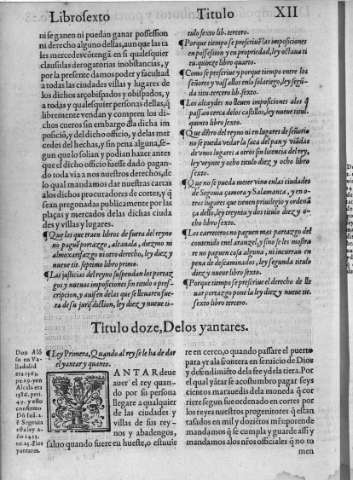 Libro sexto Titulo XII
ni se ganen ni puedan ganar possession
ni derecho alguno dellas, aunque las ta
les mercedes cōtengā en si qualesquier
clausulas derogatorias inobstancias, y
por la presente damos poder y facultad
a todas las ciudades villas y lugares de
los dichos arçobispados y obispados, y
a todas y qualesquier personas dellas, q̄
libremente vendan y compren los di-
chos cueros sin embargo dla dicha im
posiciō, y del dicho officio, y delas mer
cedes del hechas, y sin pena alguna, se-
gun que lo solian y podian hazer antes
que el dicho officio fuesse dado pagan-
do toda via a nos nuestros derechos, de
lo qual mandamos dar nuestras cartas
alos dichos procuradores de cortes, y q̄
sean pregonadas publicamente por las
plaças y mercados delas dichas ciuda
des y villas y lugares.
¶ Que los que traen libros de fuera del reyno
no paguē portazgo, alcauala, diezmo ni
almoxarifazgo ni otro derecho, ley diez y
nueue tit. septimo libro primo.
¶ Las justicias del reyno suspendan los portaz
gos y nueuas imposiciones sin titulo o pres-
cripcion, y ausen delas que se lleuaren fue-
ra de su jurisdiction, ley diez y nueue ti-
tulo sexto lib. tercero.
¶ Porque tiempo se prescriuē las imposiciones
en possession y en propriedad, ley octaua ti
tu quinze libro quarto.
¶ Como se prescriue y porque tiempo entre los
señores y vassallos enlo solariego, ley segū-
da titu tercero lib. sexto.
¶ Los alcaydes no lleuen imposiciones alos q̄
passan cerca delos castillos, ley nueue titul.
quinto libro sexto.
¶ Que dētro del reyno ni en lugares de señorio
no se pueda vedar la saca del pan y viandas
de vnos lugares a otros sin licencia del rey,
ley veynte y ocho titulo diez y ocho libro
sexto.
¶ Que no se pueda meter vino enlas ciudades
de Segouia çamora y Salamanca, y en o-
tros lugares que tienen priuilegio y ordenā
ça dello, ley treynta y dos titulo diez y o-
cho libro sexto.
¶ Los carreteros no paguen mas portazgo del
contenido enel aranzel, y sino se les mostra
re no paguen cosa alguna, ni incurran en
pena de descaminados, ley segunda titulo
diez y nueue libro sexto.
¶ Porque tiempo se prescriue el derecho de lle
uar portazgo pone la ley diez y nueue tit.
sexto libro tercero.
Titulo doze, Delos yantares.
¶ Ley Primera, Quando al rey se le ha de dar
el yantar y quanto.
YANTAR deue
auer el rey quan-
do por su persona
llegare a qualquier
de las ciudades y
villas de sus rey-
nos y abadengos,
salvo quando fuere en hueste, o estuuie
re en cerco, o quando passare el puerto
para yr ala frontera en seruicio de Dios
y defendimiēto dela fee y dela tierra. Por
el qual yātar se acostumbro pagar seys
cientos marauedis como quiera que co-
rriere segun fue ordenado en cortes por
los reyes nuestros progenitores q̄ estan
tasados en mil y dozientos mrs̄ por ende
mandamos q̄ se cumpla y guarde assi y
mandamos alos nr̄os officiales q̄ no to
men